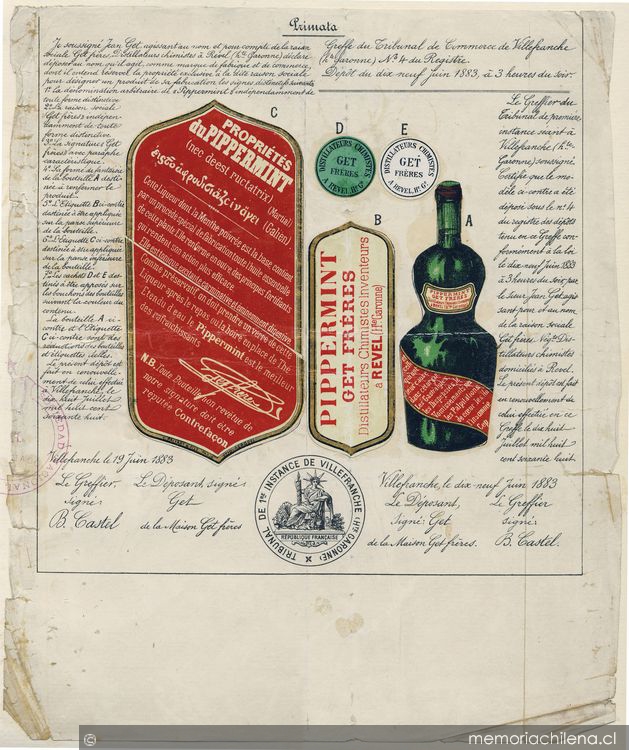 Primata
Je soussigné Jean Get, agissant au nom et pour compte de la raison
sociale Get frères, Distillateurs chimistes à Revel (Hte Garonne) déclare
déposer au nom qu'il agit, comme marque de fabrique et de commerce,
dont il entend réserver la propriété exclusive, à la dite raison sociale
pour désigner un produit de sa fabrication, les signes distinctifs suivants
1º la dénomination arbitraire de "Pippermint" indépendamment de
toute forme distinctive
2º La raison sociale
Get frères indépen-
damment de toute
forme distinctive
3º La signature Get
frères avec paraphe
caractéristique.
4º Sa forme de fantaisie
de la bouteille A desti-
née à renfermer le
produit.
5º L'Etiquette B ci-contre
destinée à être appliquée
sur la panse supérieure
de la bouteille.
6º L'Etiquette C ci-contre
destinée à être appliquée
sur la panse inférieure
de la bouteille.
7º Les cachets D et E des-
tinés à être apposés sur
les bouchons des bouteilles
suivant la couleur du
contenu.
La bouteille A ci-
contre et l'Etiquette
C ci-contre sont des
réductions des bouteilles
et étiquettes réelles.
Le présent dépôt est
fait en renouvelle-
ment de celui effectué
à Villefranche, le
dix huit Juillet
mil huit cent
soixante huit.
Greffe du Tribunal de Commerce de Villefranche
(Hte Garonne) Nº 4 du Registre.
Dépôt du dix neuf juin 1883, à 3 heures du soir.
C
PROPRIÉTÉS
du PIPPERMINT
(nec deest ructatrix)
(Martial)
(Galien)
Cette Liqueur dont la Menthe poivrée est la base, contient
par un procédé spécial de fabrication toute l'huile essentielle
de cette plante. Elle renferme encore des principes fortifiants
qui rendent son action plus efficace.
Elle est tonique, cordiale, carminative et éminemment digestive
Comme préservatif on doit prendre un verre de cette
Liqueur après le repas ou la boire en place de Thé.
Etendu d'eau, le Pippermint est le meilleur
des raffraichissants
Get frères
N.B. Toute Bouteille non revêtue de
notre signature doit être
réputée Contrefaçon
D
DISTILLATEURS CHIMISTES
GET
FRÈRES
A REVEL, Hte Gne
E
DISTILLATEURS CHIMISTES
GET
FRÈRES
A REVEL, Hte Gne
B
PIPPERMINT
GET FRÈRES
Distillateurs Chimistes Inventeurs
à REVEL (Hte Garonne)
A
GET FRÈRES
Le Greffier du
Tribunal de première
instance séant à
Villefranche (Hte-
Garonne) soussigné
Certifie que le mo-
dèle ci-contre a été
déposé sous le nº 4
du registre des dépôts
tenu en ce Greffe con-
formément à la loi
le dix neuf juin 1883
à 3 heures du soir, par
le sieur Jean Get agis-
sant pour et au nom
de la raison sociale
Get frères, Négts Dis-
tillateurs chimistes
domiciliés à Revel.
Le présent dépôt est fait
en renouvellement de
celui effectué en ce
Greffe le dix huit
juillet mil huit
cent soixante huit
Villefranche le 19 juin 1883
Le Greffier
Signé:
B. Castel
Le Déposant, signé:
Get
de la Maison Get frères
TRIBUNAL DE 1re INSTANCE DE VILLEFRANCHE (Hte GARONNE)
RÉPUBLIQUE FRANÇAISE
Villefranche, le dix-neuf Juin 1883
Le Déposant,
Signé: Get
de la Maison Get frères.
Le Greffier
signé:
B. Castel.
© memoriachilena.cl